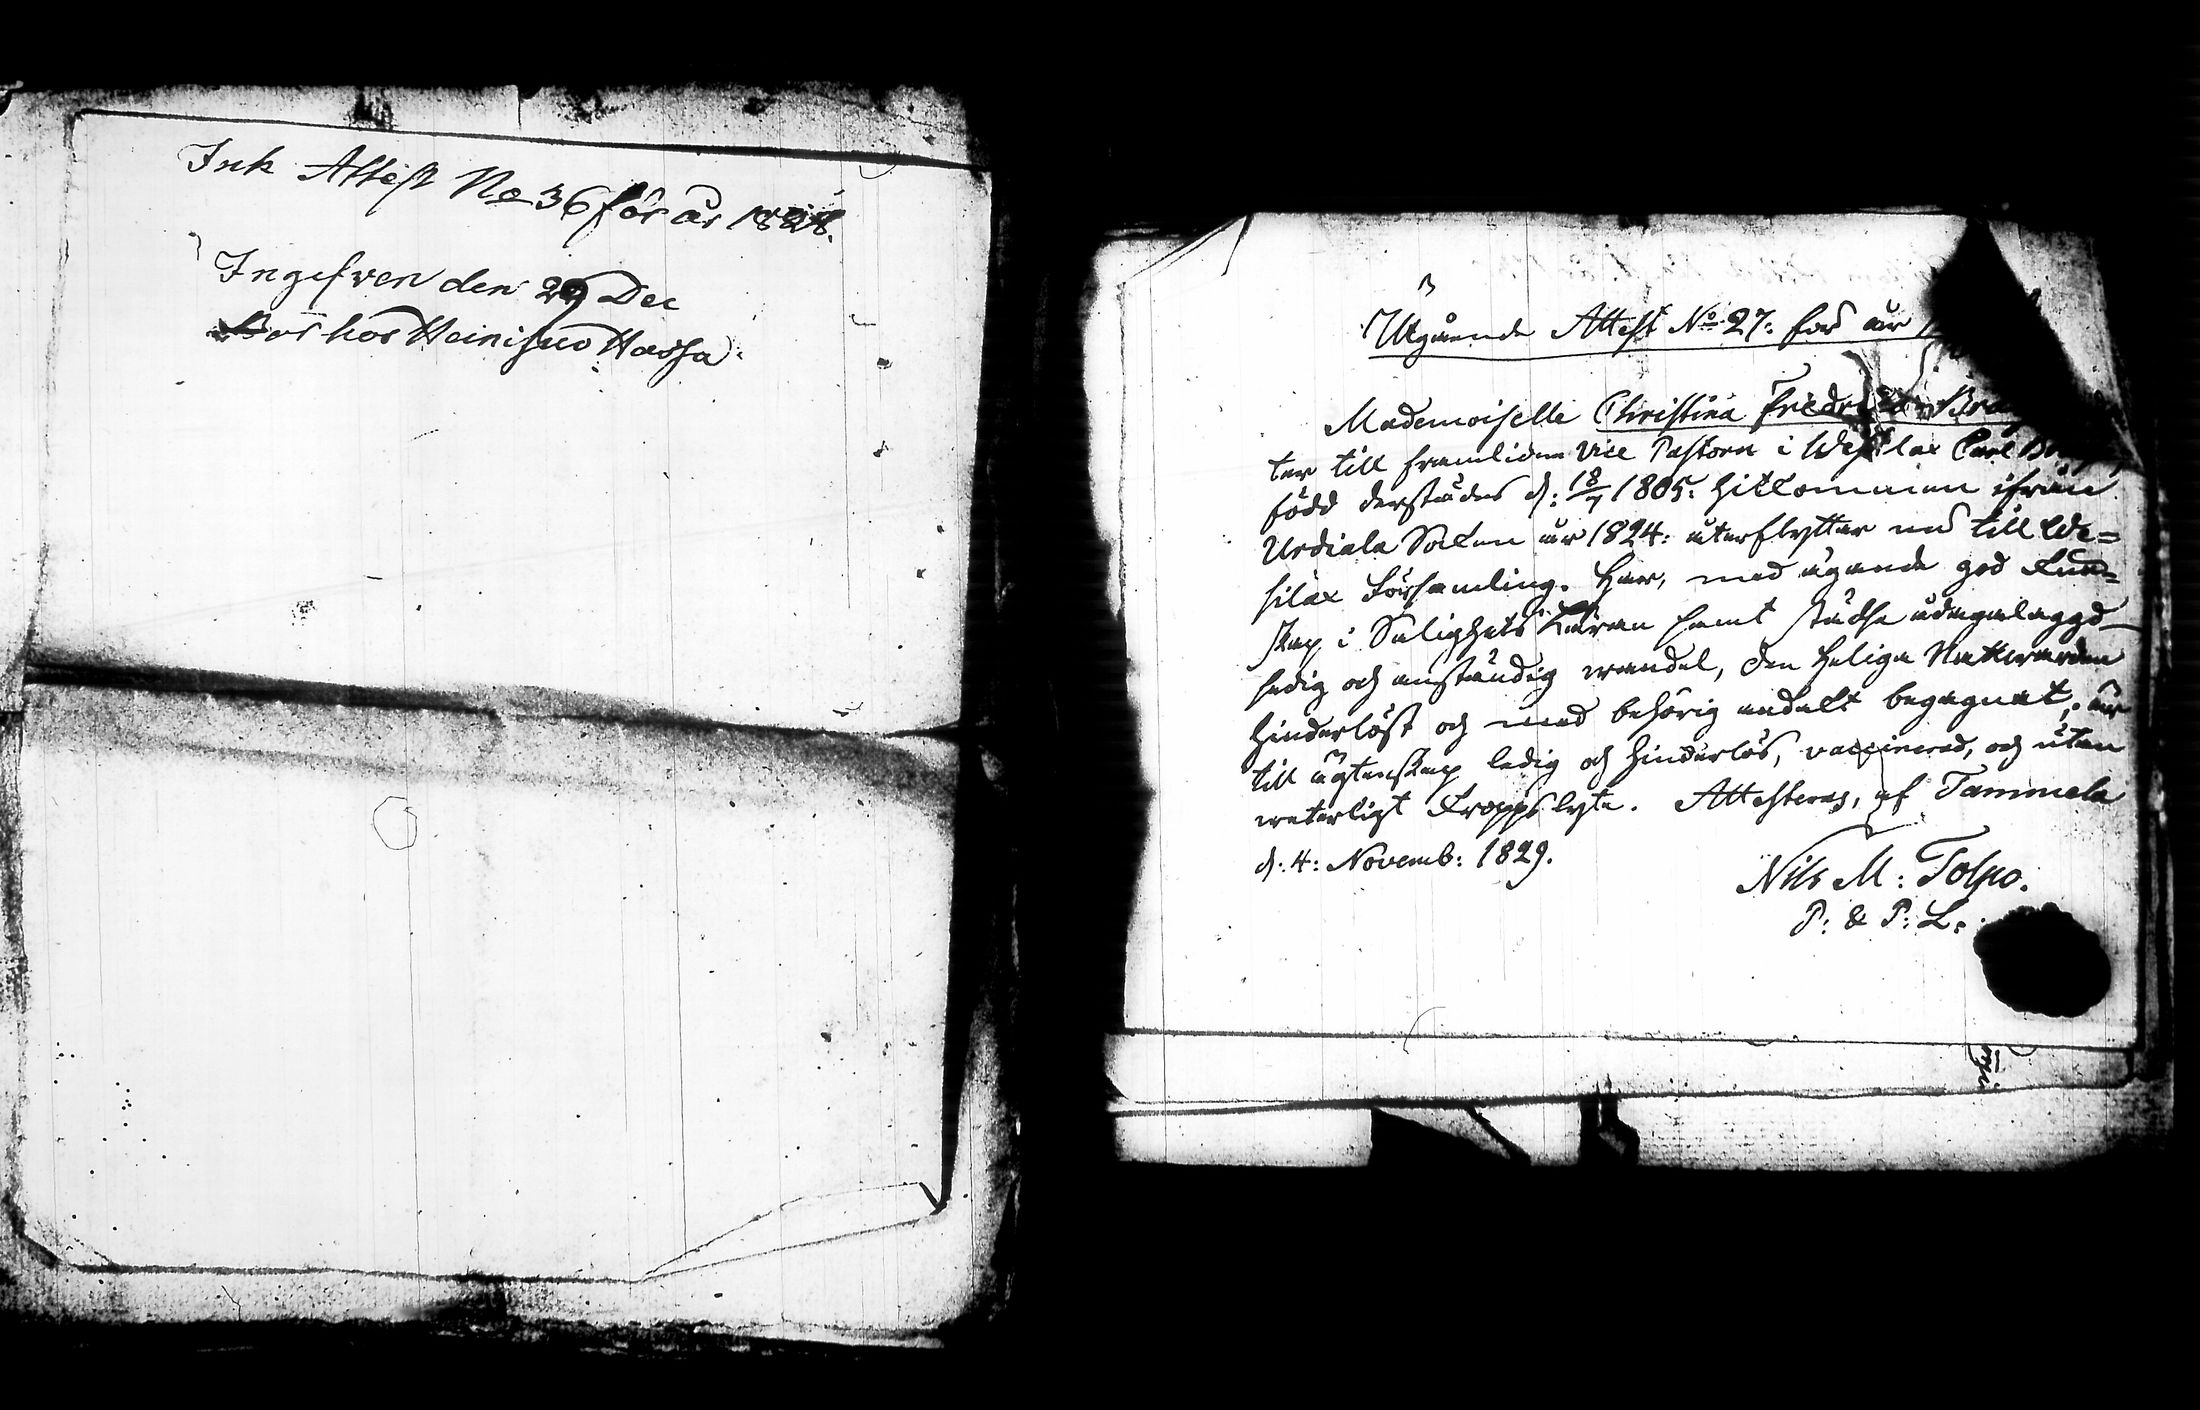 Ink Attest No 36 för år 1828.
Ingifven den 29 Dec
Bor hos Heinisuo Hassa
Utgående Attest No 27: för år
Mademoiselle Christina Fredrika
ter till framlidne Vice Pastorn i Wesilax Carl
född derstädes d: 18/7 1805: hitkommen ifrån
Urdiala Sokn år 1824: återflyttar nu till We=
silax Församling. Har, med ägande god Kun=
skap i Salighets Läran samt städse ådagalaggd
sedig och anständig vandel, den Heliga Nattvarden
hinderlöst och med behörig andakt begagnat; är
till ägtenskap ledig och hinderlös, vaccinerad, och utan
veterligt Kroppslyte. Attesteras, af Tammela
d: 4: Novemb: 1829.
Nils M: Tolpo.
P: & P: L: